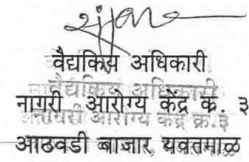 वैद्यकिस अधिकारी
नागरी आरोग्य केंद्र क्र. ३
आठवडी बाजार, यवतमाळ